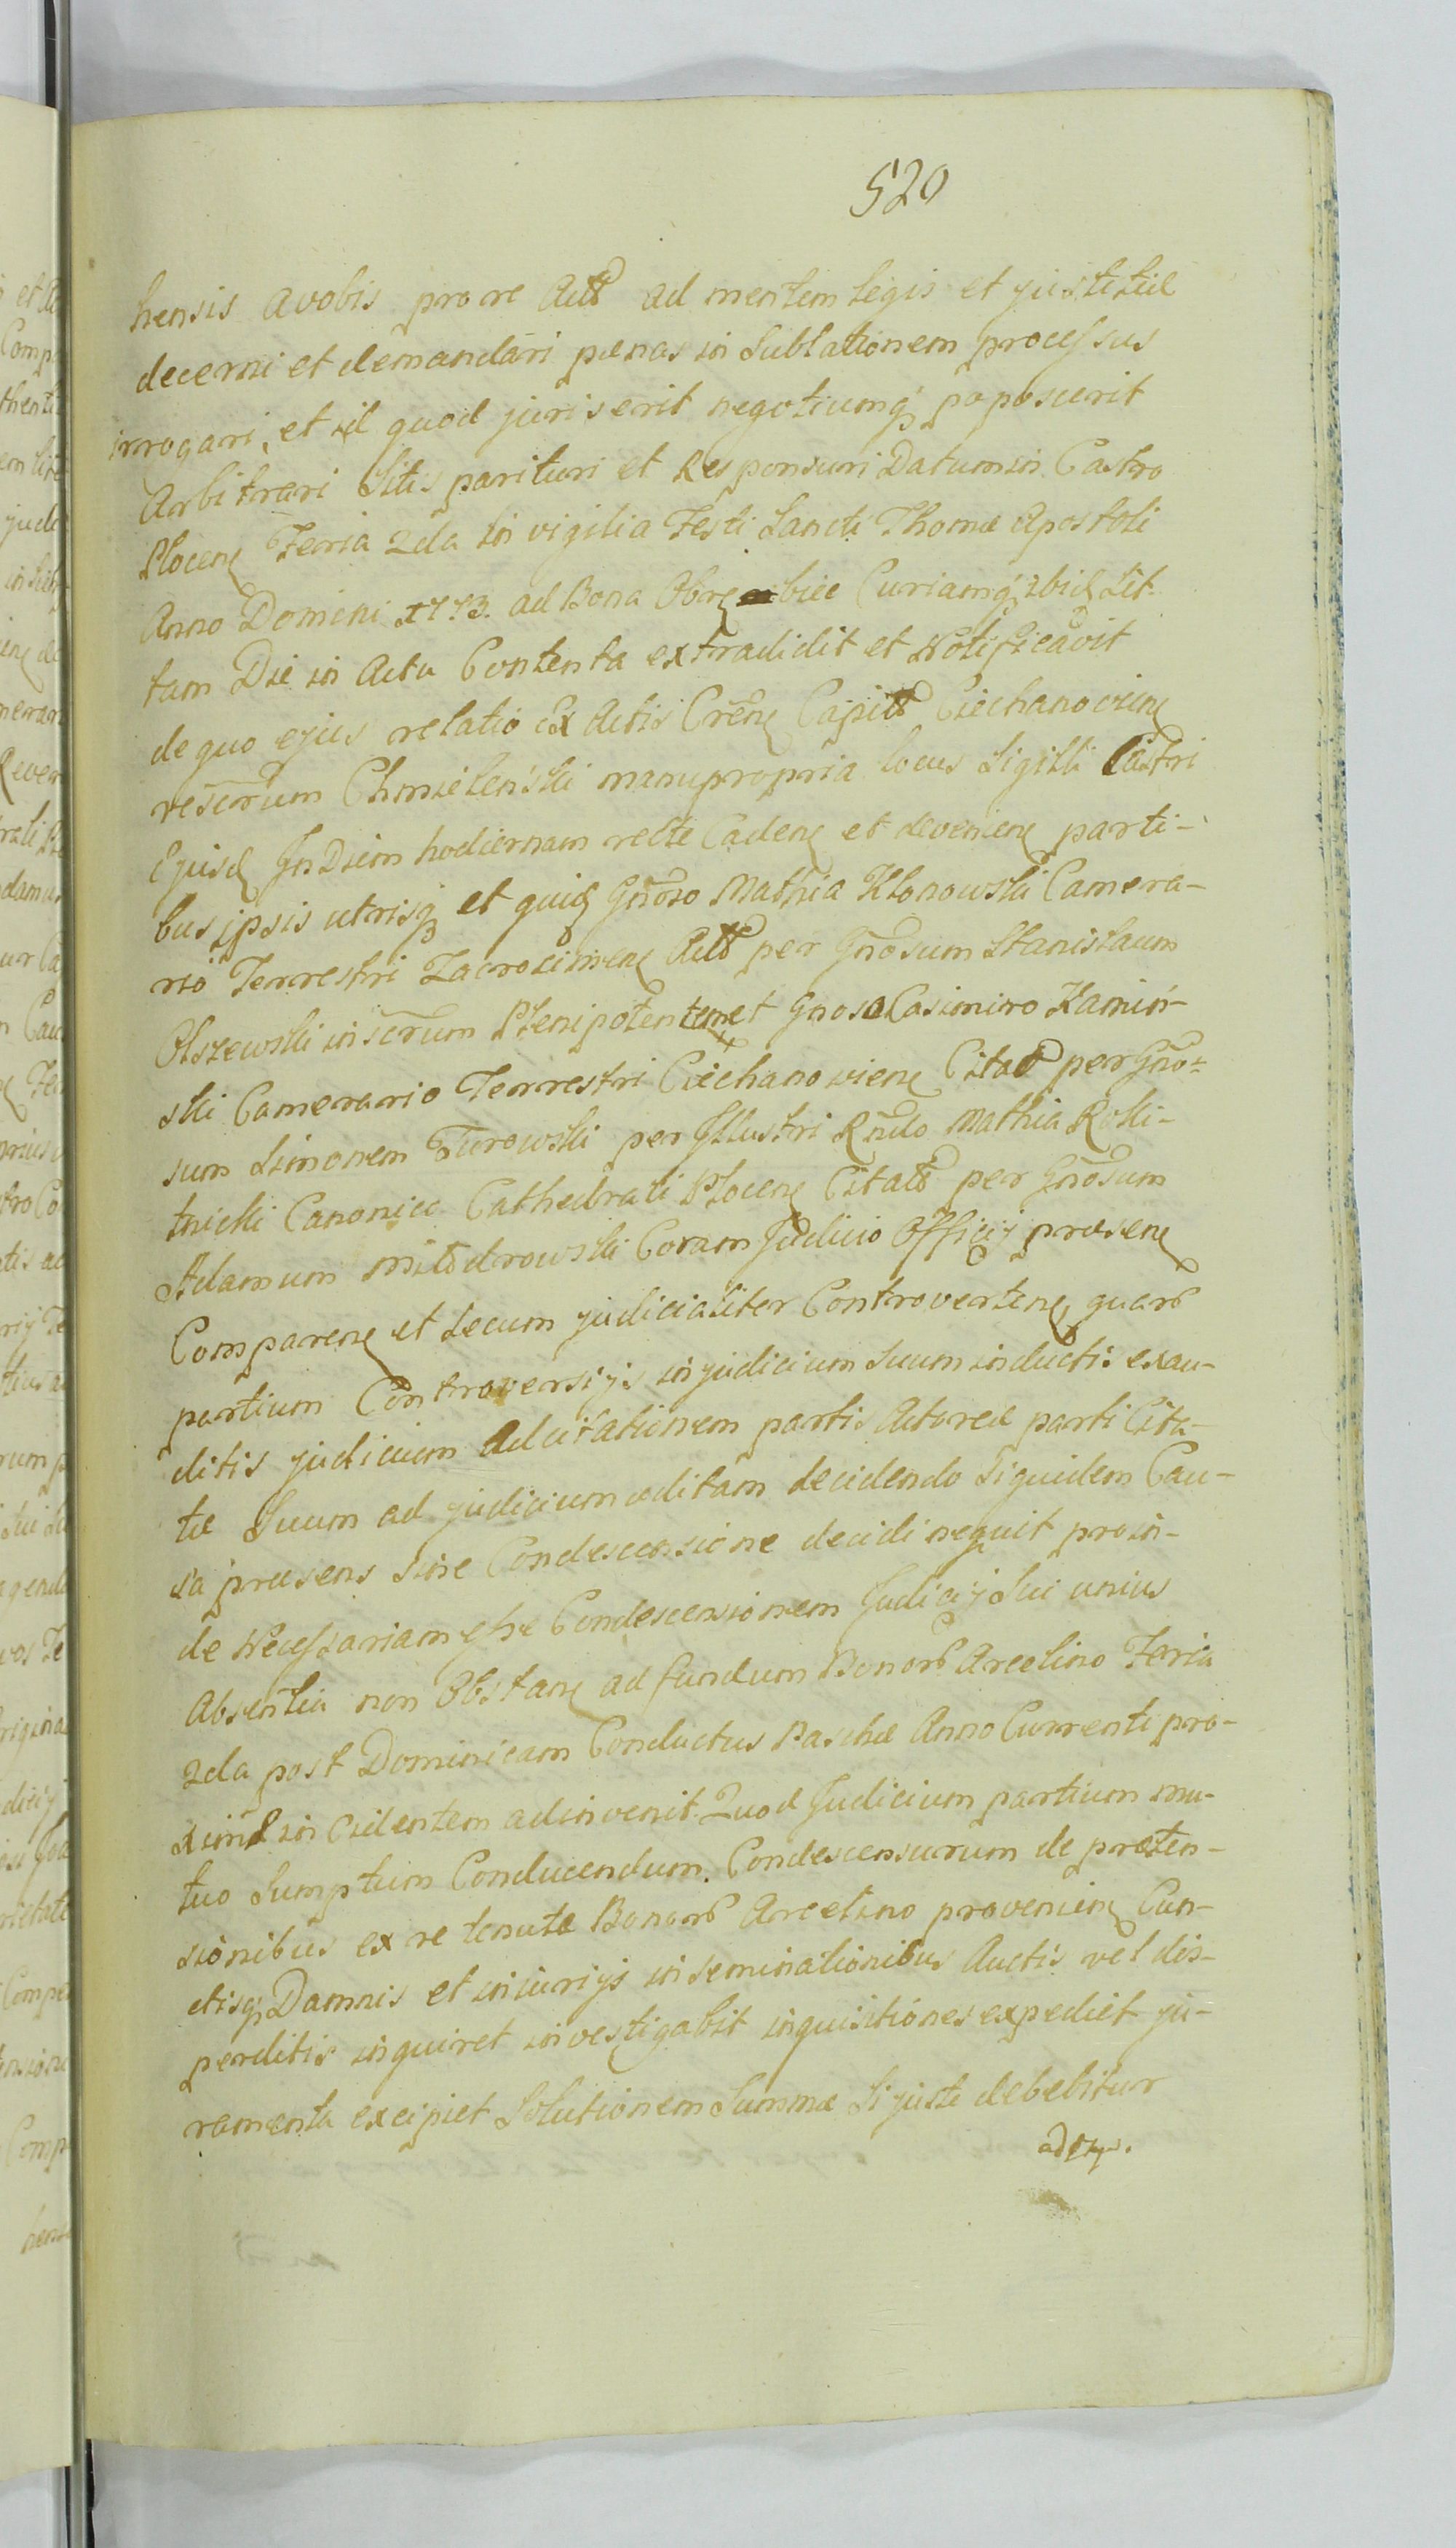 520
hensis a vobis pro re Act ad mentem legis et justitiæ
decerni et demandari pœnas in sublationem processus
irrogari, et id quod juris erit negotiumq, poposcerit
Arbitrari Sitis parituri et Responsuri Datum in Castro
Plocen Feria 2da in vigilia Festi Sancti Thomæ Apostoli
Anno Domini 1773. ad Bona Obrembiec Curiamq, ibid Sit.
tam Die in Actu Contenta extradidit et Notificavit
de quo ejus relatio Ex Actis Cren Capit Ciechanovien
rescrum Chmieleński manu propria locus Sigilli Castri
Ejusd In Diem hodiernam recte Caden et devenien parti-
bus ipsis utrisq, et quid Gnoso Mathia Klonowski Camera-
rio Terrestri Zacrocimen Act per Gnosum Stanislaum
Olszewski inscrum Plenipotentem et Gnoso Casimiro Kamiń-
ski Camerario Terrestri Ciechanovien Citat per Gno-
sum Simonem Turowski per Illustri Rndo Mathia Roki-
tnicki Canonico Cathedrali Plocen Citat per Gnosum
Adamum Miłodrowski Coram Judicio Officij præsen
Comparen et secum judicialiter Controverten, quar
partium Controversijs in judicium suum inductis exau-
ditis judicium Ad citationem partis Actoreæ parti Cita-
tæ Suum ad judicium editam decidendo Siquidem Cau-
sa præsens sine Condescensione decidi nequit proin-
de Necessariam esse Condescensionem Judicij Sui unius
Absentia non Obstan ad fundum Bonor Arcelino Feria
2da post Dominicam Conductus Paschæ Anno Currenti pro-
xime incidentem adinvenit. Quod Judicium partium mu-
tuo Sumptum Conducendum. Condescensurum de præten-
sionibus ex re tenutæ Bonor Arcelino provenien Cun-
ctisq, Damnis et injurijs inseminationibus Auctis vel dis-
perditis inquiret investigabit inquisitiones expediet ju-
ramenta excipiet Solutionem Summæ Si juste debebitur